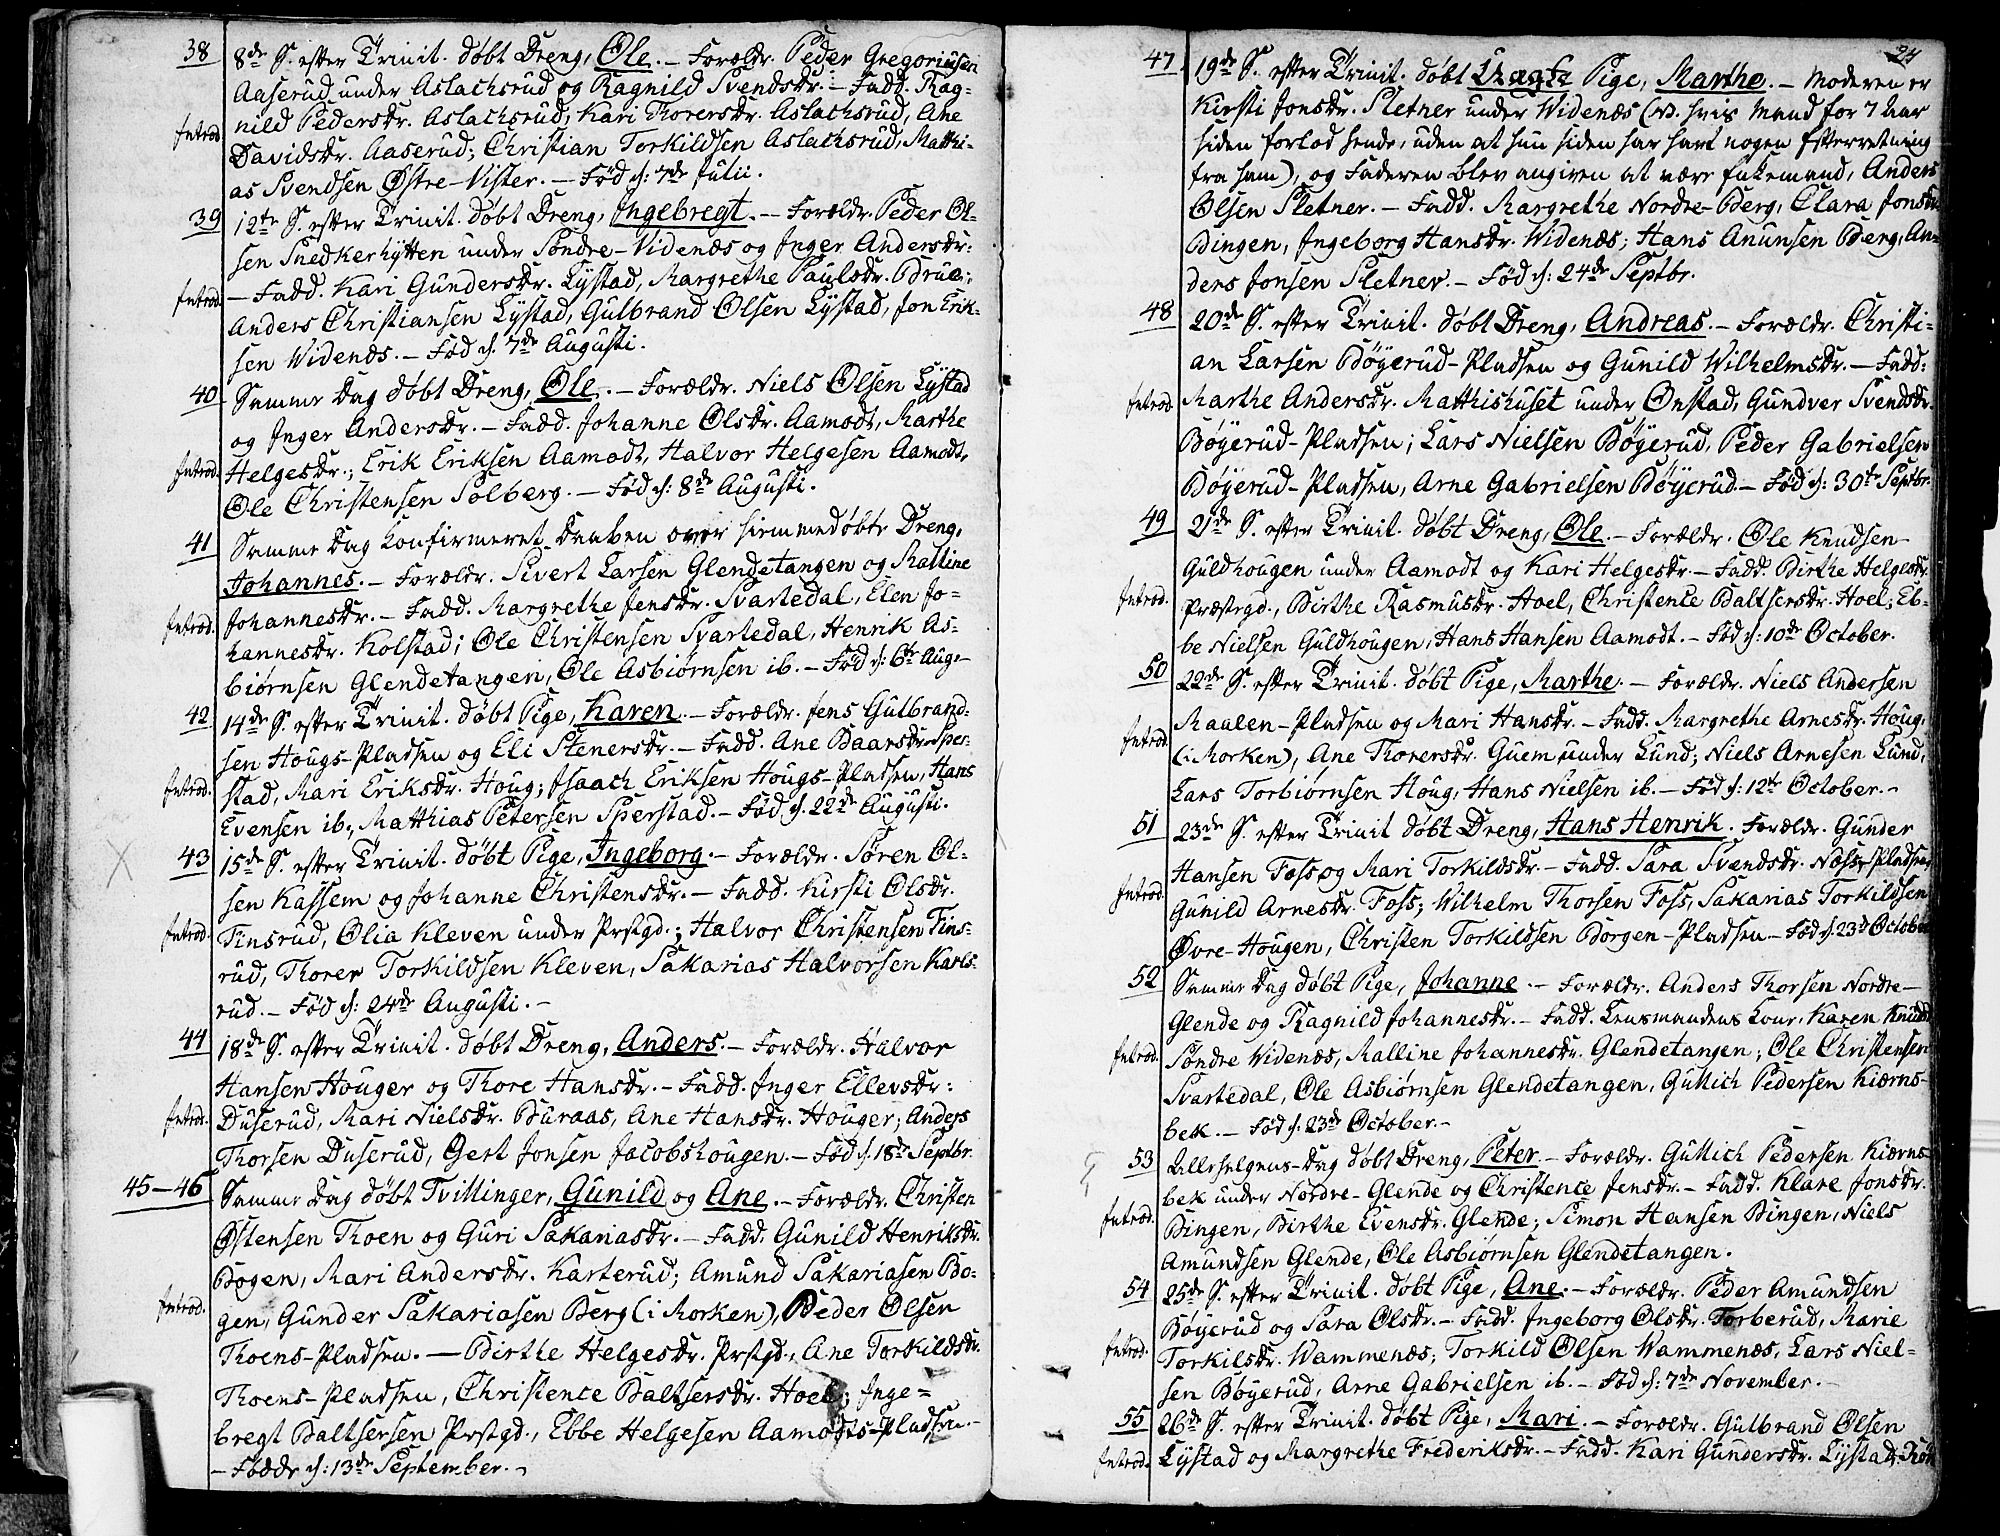 38 8de S. efter Trinit. døbt Dreng, Ole. – Forældr. Peder Gregoriusen
Aaserud under Aslachsrud og Ragnild Svendsdr. – Fadd. Rag-
Introd. nild Pedersdr. Aslachsrud, Kari Thorersdr. Aslachsrud, Ane
Davidsdr. Aaserud; Christian Torkildsen Aslachsrud, Matthi-
as Svendsen Østre-Vister. – Fød d: 7de Julii.
39 12te S. efter Trinit. døbt Dreng, Ingebregt. – Forældr. Peder Ol-
sen Snedkerhytten under Søndre-Videnæs og Inger Andersdr:
Introd. – Fadd. Kari Gundersdr. Lystad, Margrethe Paulsdr. Brue;
Anders Christiansen Lystad, Gulbrand Olsen Lystad, Jon Erik-
sen Widenæs. – Fød d. 7de Augusti.
40 Samme Dag døbt Dreng, Ole. – Forældr. Niels Olsen Lystad
og Inger Andersdr. – Fadd. Johanne Olsdr. Aamodt, Marthe
Introd. Helgesdr.; Erik Eriksen Aamodt, Halvor Helgesen Aamodt,
Ole Christensen Solberg. – Fød d: 8de Augusti.
41 Samme Dag Konfirmeret Daaben over hiemmedøbte Dreng,
Johannes. – Forældr. Sivert Larsen Glendetangen og Malline
Introd. Johannesdr. – Fadd. Margrethe Jensdr. Svartedal, Elen Jo-
hannesdr. Kolstad; Ole Christensen Svartedal, Henrik As-
biørnsen Glendetangen, Ole Asbiørnsen ib. – Fød d: 6te Aug.
42 14de S. efter Trinit. døbt Pige, Karen. – Forældr. Jens Gulbrand-
sen Hougs-Pladsen og Eli Stenersdr. – Fadd. Ane Baarsdr. Sper-
Introd. stad, Mari Eriksdr. Houg; Isaach Eriksen Hougs-Pladsen, Hans
Evensen ib., Matthias Petersen Sperstad. – Fød d. 22de Augusti.
43 15de S. efter Trinit. døbt Pige, Ingeborg. – Forældr. Søren Ol-
sen Kassem og Johanne Christensdr. – Fadd. Kirsti Olsdr.
Introd. Finsrud, Olia Kleven under Prstgd.; Halvor Christensen Fins-
rud, Thorer Torkildsen Kleven, Sakarias Halvorsen Karls-
rud. – Fød d: 24de Augusti. –
44 18de S. efter Trinit. døbt Dreng, Anders. – Forældr. Halvor
Hansen Houger og Thore Hansdr. – Fadd. Inger Ellevsdr:
Introd. Duserud, Mari Nielsdr. Buraas, Ane Hansdr. Houger; Anders
Thorsen Duserud, Gert Jonsen Jacobshougen. – Fød d. 18de Septbr.
45–46 Samme Dag døbt Tvillinger, Gunild og Ane. – Forældr. Christen
Østensen Thoen og Guri Sakariasdr. – Fadd. Gunild Henriksdr.
Bogen, Mari Andersdr. Karterud; Amund Sakariasen Bo-
Introd. gen, Gunder Sakariasen Berg (i Morken), Peder Olsen
Thoens-Pladsen. – Birthe Helgesdr. Prstgd., Ane Torkildsdr.
Thoens-Pladsen, Christence Baltsersdr. Hoel; Inge-
bregt Baltsersen Prstgd., Ebbe Helgesen Aamodts-Pladsen. –
– Fødde d: 13de September. –
24
47 19de S. efter Trinit. døbt Uægte Pige, Marthe. – Moderen er
Kirsti Jonsdr. Sletner under Widenæs (NB. hvis Mand for 7 Aar
siden forlod hende, uden at hun siden har havt nogen Efterretning
fra ham), og Faderen blev angiven at være Enkemand, Anders
Olsen Sletner. – Fadd. Margrethe Nordre-Berg, Clara Jonsdr.
Bingen, Ingeborg Hansdr. Widenæs; Hans Anunsen Berg, An-
ders Jonsen Sletner. – Fød d: 24de Septbr.
48 20de S. efter Trinit. døbt Dreng, Andreas. – Forældr. Christi-
an Larsen Bøyerud-Pladsen og Gunild Wilhelmsdr. – Fadd:
Introd. Marthe Andersdr. Matthishuset under Onstad, Gundver Svendsdr.
Bøyerud-Pladsen; Lars Nielsen Bøyerud, Peder Gabrielsen
Bøyerud-Pladsen, Arne Gabrielsen Bøyerud. – Fød d: 30te Septbr.
49 21de S. efter Trinit. døbt Dreng, Ole. – Forældr. Ole Knudsen
Introd. Guldhougen under Aamodt og Kari Helgesdr. – Fadd. Birthe Helgesdr.
Præstgd., Birthe Rasmusdr. Hoel, Christence Baltsersdr. Hoel; Eb-
be Nielsen Guldhougen, Hans Hansen Aamodt. – Fød d: 10de October.
50 22de S. efter Trinit. døbt Pige, Marthe. – Forældr. Niels Andersen
Introd. Maulen-Pladsen og Mari Hansdr. – Fadd. Margrethe Arnesdr. Houg,
(i Morken), Ane Thorersdr. Guem under Lund; Niels Arnesen Lund,
Lars Torbiørnsen Houg, Hans Nielsen ib. – Fød d: 12te October. –
51 23de S. efter Trinit døbt Dreng, Hans Henrik. Forældr. Gunder
Introd. Hansen Foss og Mari Torkildsdr. – Fadd. Sara Svendsdr. Næss-Pladsen,
Gunild Arnesdr. Foss; Wilhelm Thorsen Foss, Sakarias Torkildsen
Øvre-Hougen, Christen Torkildsen Borgen-Pladsen – Fød d. 23de October
52 Samme Dag døbt Pige, Johanne. – Forældr. Anders Thorsen Nordre-
Glende og Ragnild Johannesdr. – Fadd. Lensmandens Kone, Karen Knudsdr.
Introd. Søndre Widenæs, Malline Johannesdr. Glendetangen; Ole Christensen
Svartedal, Ole Asbiørnsen Glendetangen, Gullich Pedersen Kiærns-
bek. – Fød d: 23de October. –
53 Allehelgens-Dag døbt Dreng, Peter. – Forældr. Gullich Pedersen Kiærns-
Introd. bek under Nordre-Glende og Christence Jensdr. – Fadd. Klare Jonsdr.
Bingen, Birthe Evensdr. Glende; Simon Hansen Bingen, Niels
Amundsen Glende, Ole Asbiørnsen Glendetangen.
54 25de S. efter Trinit. døbt Pige, Ane. – Forældr. Peder Amundsen
Bøyerud og Sara Olsdr. – Fadd. Ingeborg Olsdr. Torberud, Marie
Introd. Torkilsdr. Wammenæs; Torkild Olsen Wammenæs, Lars Niel-
sen Bøyerud, Arne Gabrielsen ib. – Fød d: 7de November. –
55 26de S. efter Trinit. døbt Pige, Mari. – Forældr. Gulbrand Olsen
Introd. Lystad og Margrethe Frederiksdr. – Fadd. Kari Gundersdr. Lystad,